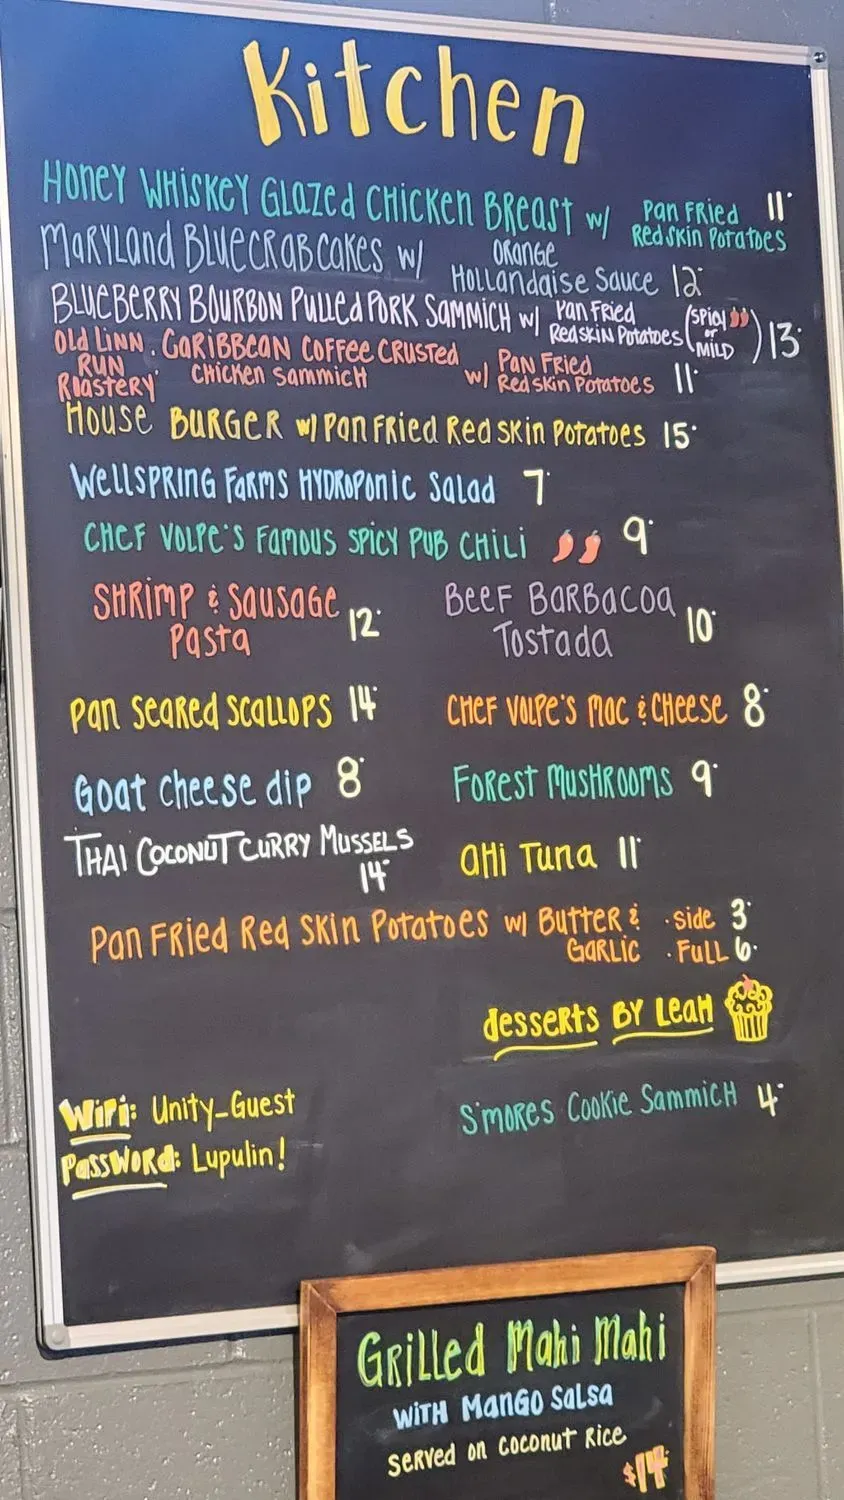 Kitchen
Honey Whiskey Glazed Chicken Breast w/ Pan Fried Redskin Potatoes 11
Maryland Bluecrabcakes w/ Orange Hollandaise Sauce 12
Blueberry Bourbon Pulled Pork Sammich w/ Pan Fried Redskin Potatoes (Spicy or Mild) 13
Old Linn Run Roastery Caribbean Coffee Crusted Chicken Sammich w/ Pan Fried Redskin Potatoes 11
House Burger w/ Pan Fried Red Skin Potatoes 15
Wellspring Farms Hydroponic Salad 7
Chef Volpe's Famous Spicy Pub Chili 9
Shrimp & Sausage Pasta 12
Beef Barbacoa Tostada 10
Pan Seared Scallops 14
Chef Volpe's Mac & Cheese 8
Goat Cheese dip 8
Forest Mushrooms 9
Thai Coconut Curry Mussels 14
Ahi Tuna 11
Pan Fried Red Skin Potatoes w/ Butter & Garlic
· Side 3
· Full 6
desserts By Leah
S'mores Cookie Sammich 4
WiFi: Unity_Guest
Password: Lupulin!
Grilled Mahi Mahi
With Mango Salsa
Served on Coconut Rice
$14